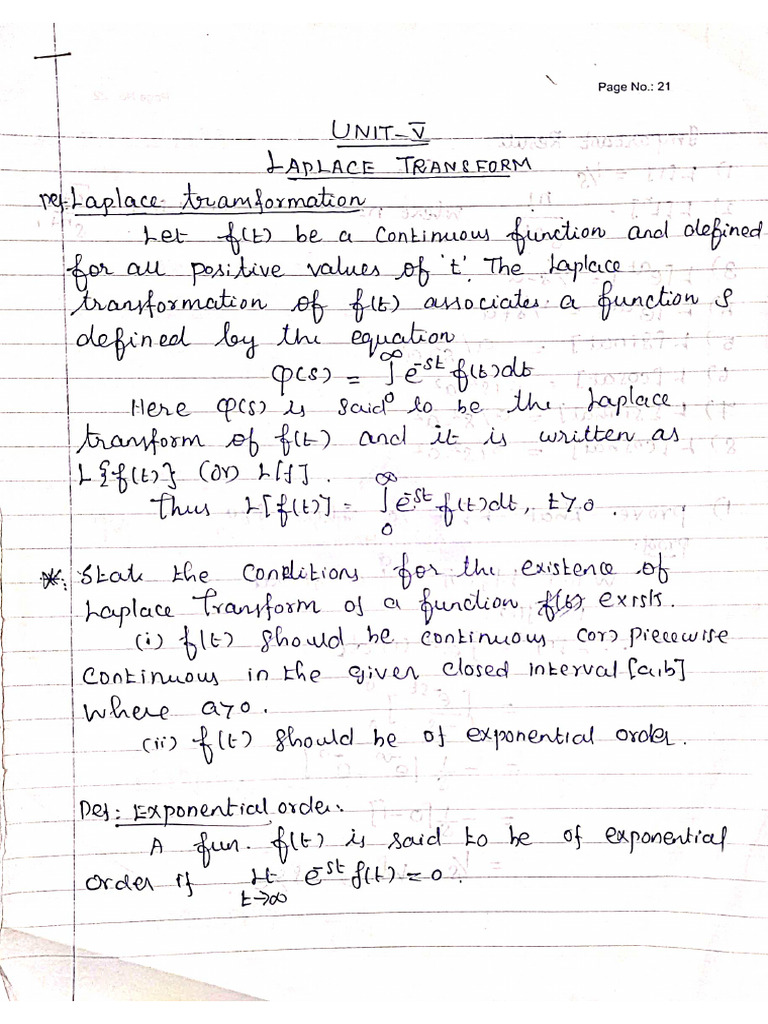 Page No.: 21
UNIT-V
LAPLACE TRANSFORM
Def: Laplace transformation
Let f(t) be a continuous function and defined
for all positive values of 't'. The Laplace
transformation of f(t) associates a function s
defined by the equation
φ(s) = ∫₀^∞ e^-st f(t)dt
Here φ(s) is said to be the Laplace
transform of f(t) and it is written as
L{f(t)} (or) L[f].
Thus L[f(t)] = ∫₀^∞ e^-st f(t)dt, t>0.
*: State the conditions for the existence of
Laplace Transform of a function f(t) exists.
(i) f(t) should be continuous (or) piecewise
continuous in the given closed interval [a,b]
where a>0.
(ii) f(t) should be of exponential order.
Def: Exponential order:
A fun. f(t) is said to be of exponential
order if Lt t→∞ e^-st f(t) = 0.